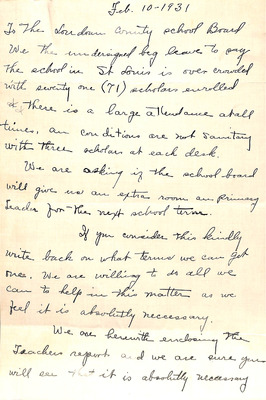 Feb. 10-1931
To The Loudoun County school Board
We the undersigned beg leave to say
the school in St Louis is over crowded
with seventy one (71) scholars enrolled
& there is a large attendance at all
times. an conditions are not sanitary
with three scholars at each desk.
We are asking if the school board
will give us an extra room an primary
teacher for the next school term.
If you consider this kindly
write back on what terms we can get
one. We are willing to do all we
can to help in this matter as we
feel it is absolutly neccessary.
We are herewith enclosing the
Teachers report and we are sure you
will see that it is absolutly neccessary